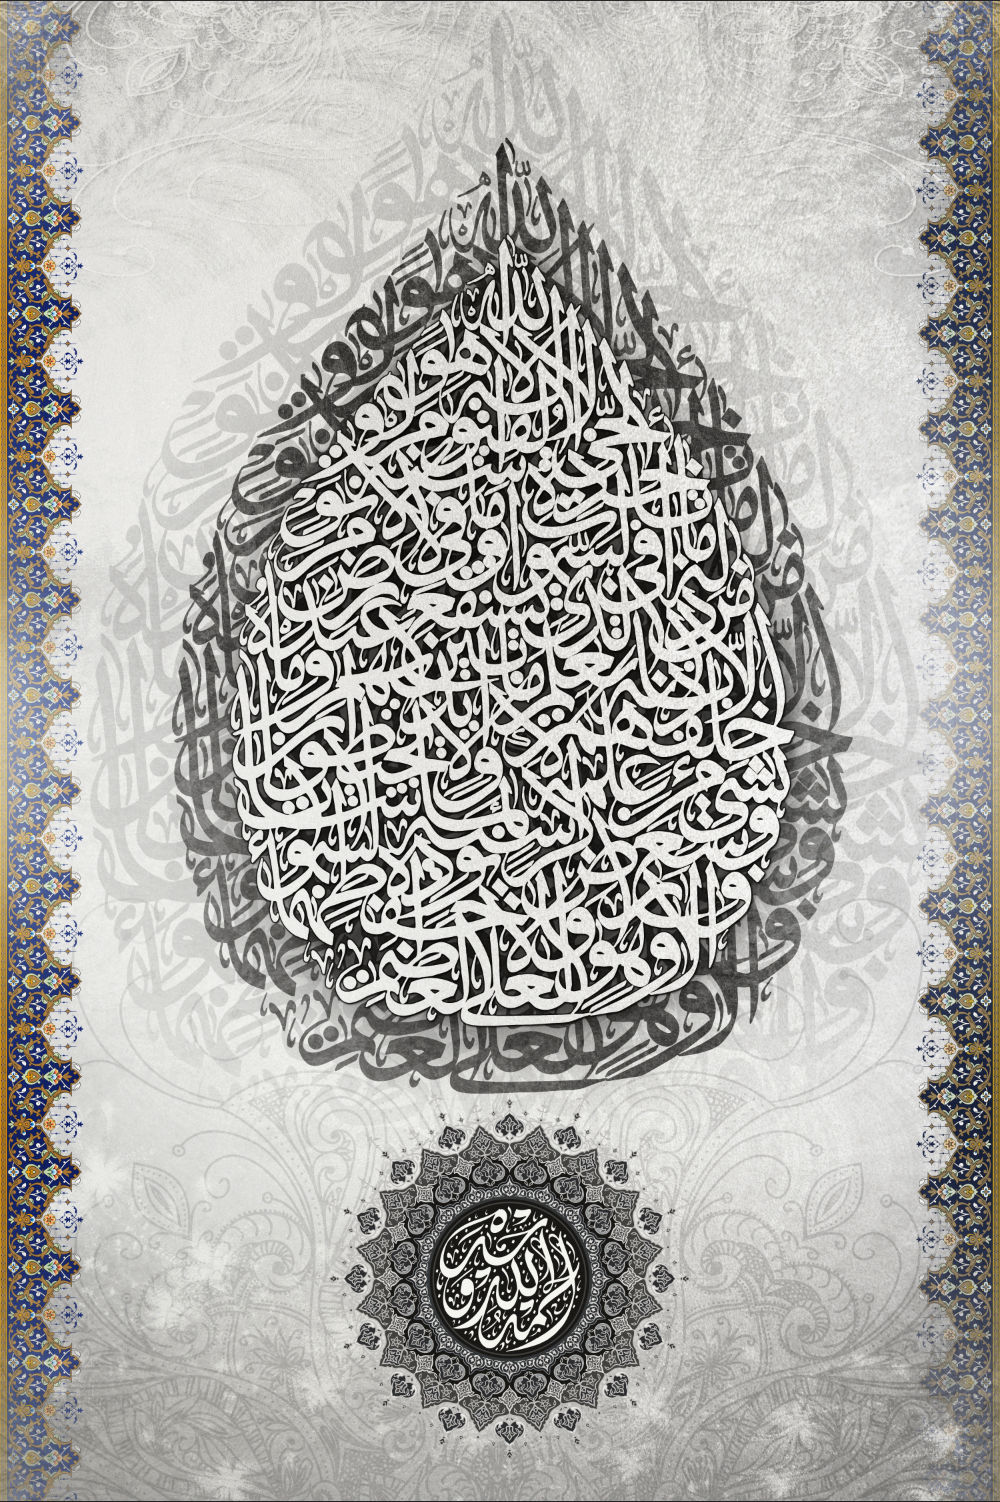 الله
لا إله إلا هو
الحي القيوم
لا تأخذه سنة ولا نوم
له ما في السموات وما في الأرض
من ذا الذي يشفع عنده
إلا بإذنه يعلم ما بين أيديهم وما
خلفهم ولا يحيطون
بشيء من علمه إلا بما شاء
وسع كرسيه السموات
والأرض ولا يئوده حفظهما
وهو العلي العظيم
الحمد لله وحده